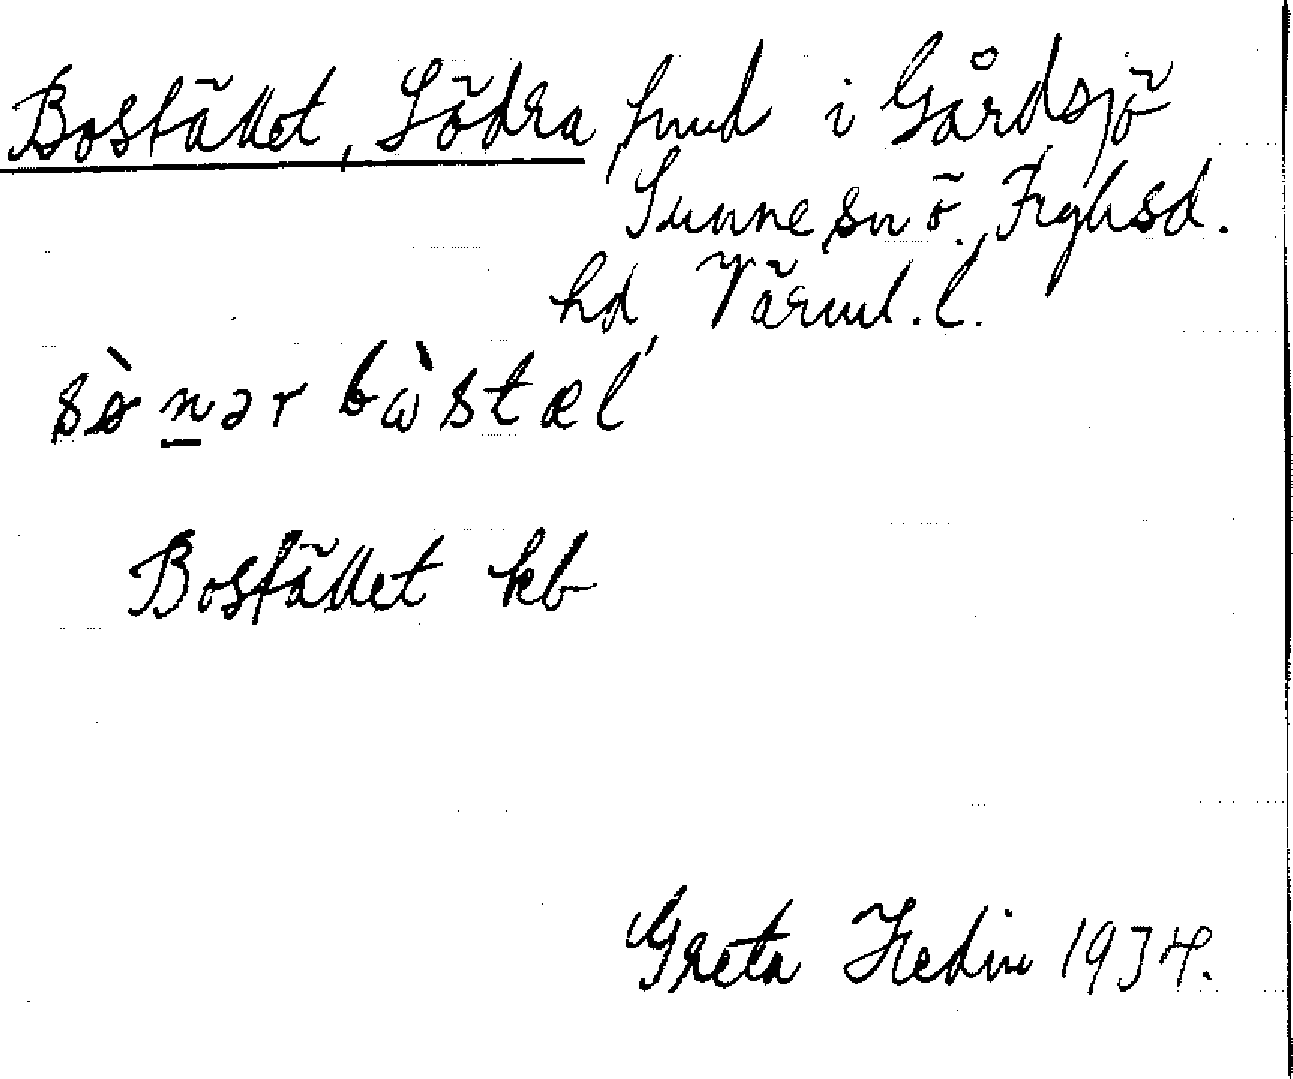 Bostället, Södra, hmd i Gårdsjö
Sunne sn ö. Fryksd.
hd, Värml. l.
sὼnər bὼstæl
Bostället kb
Greta Hedin 1934.